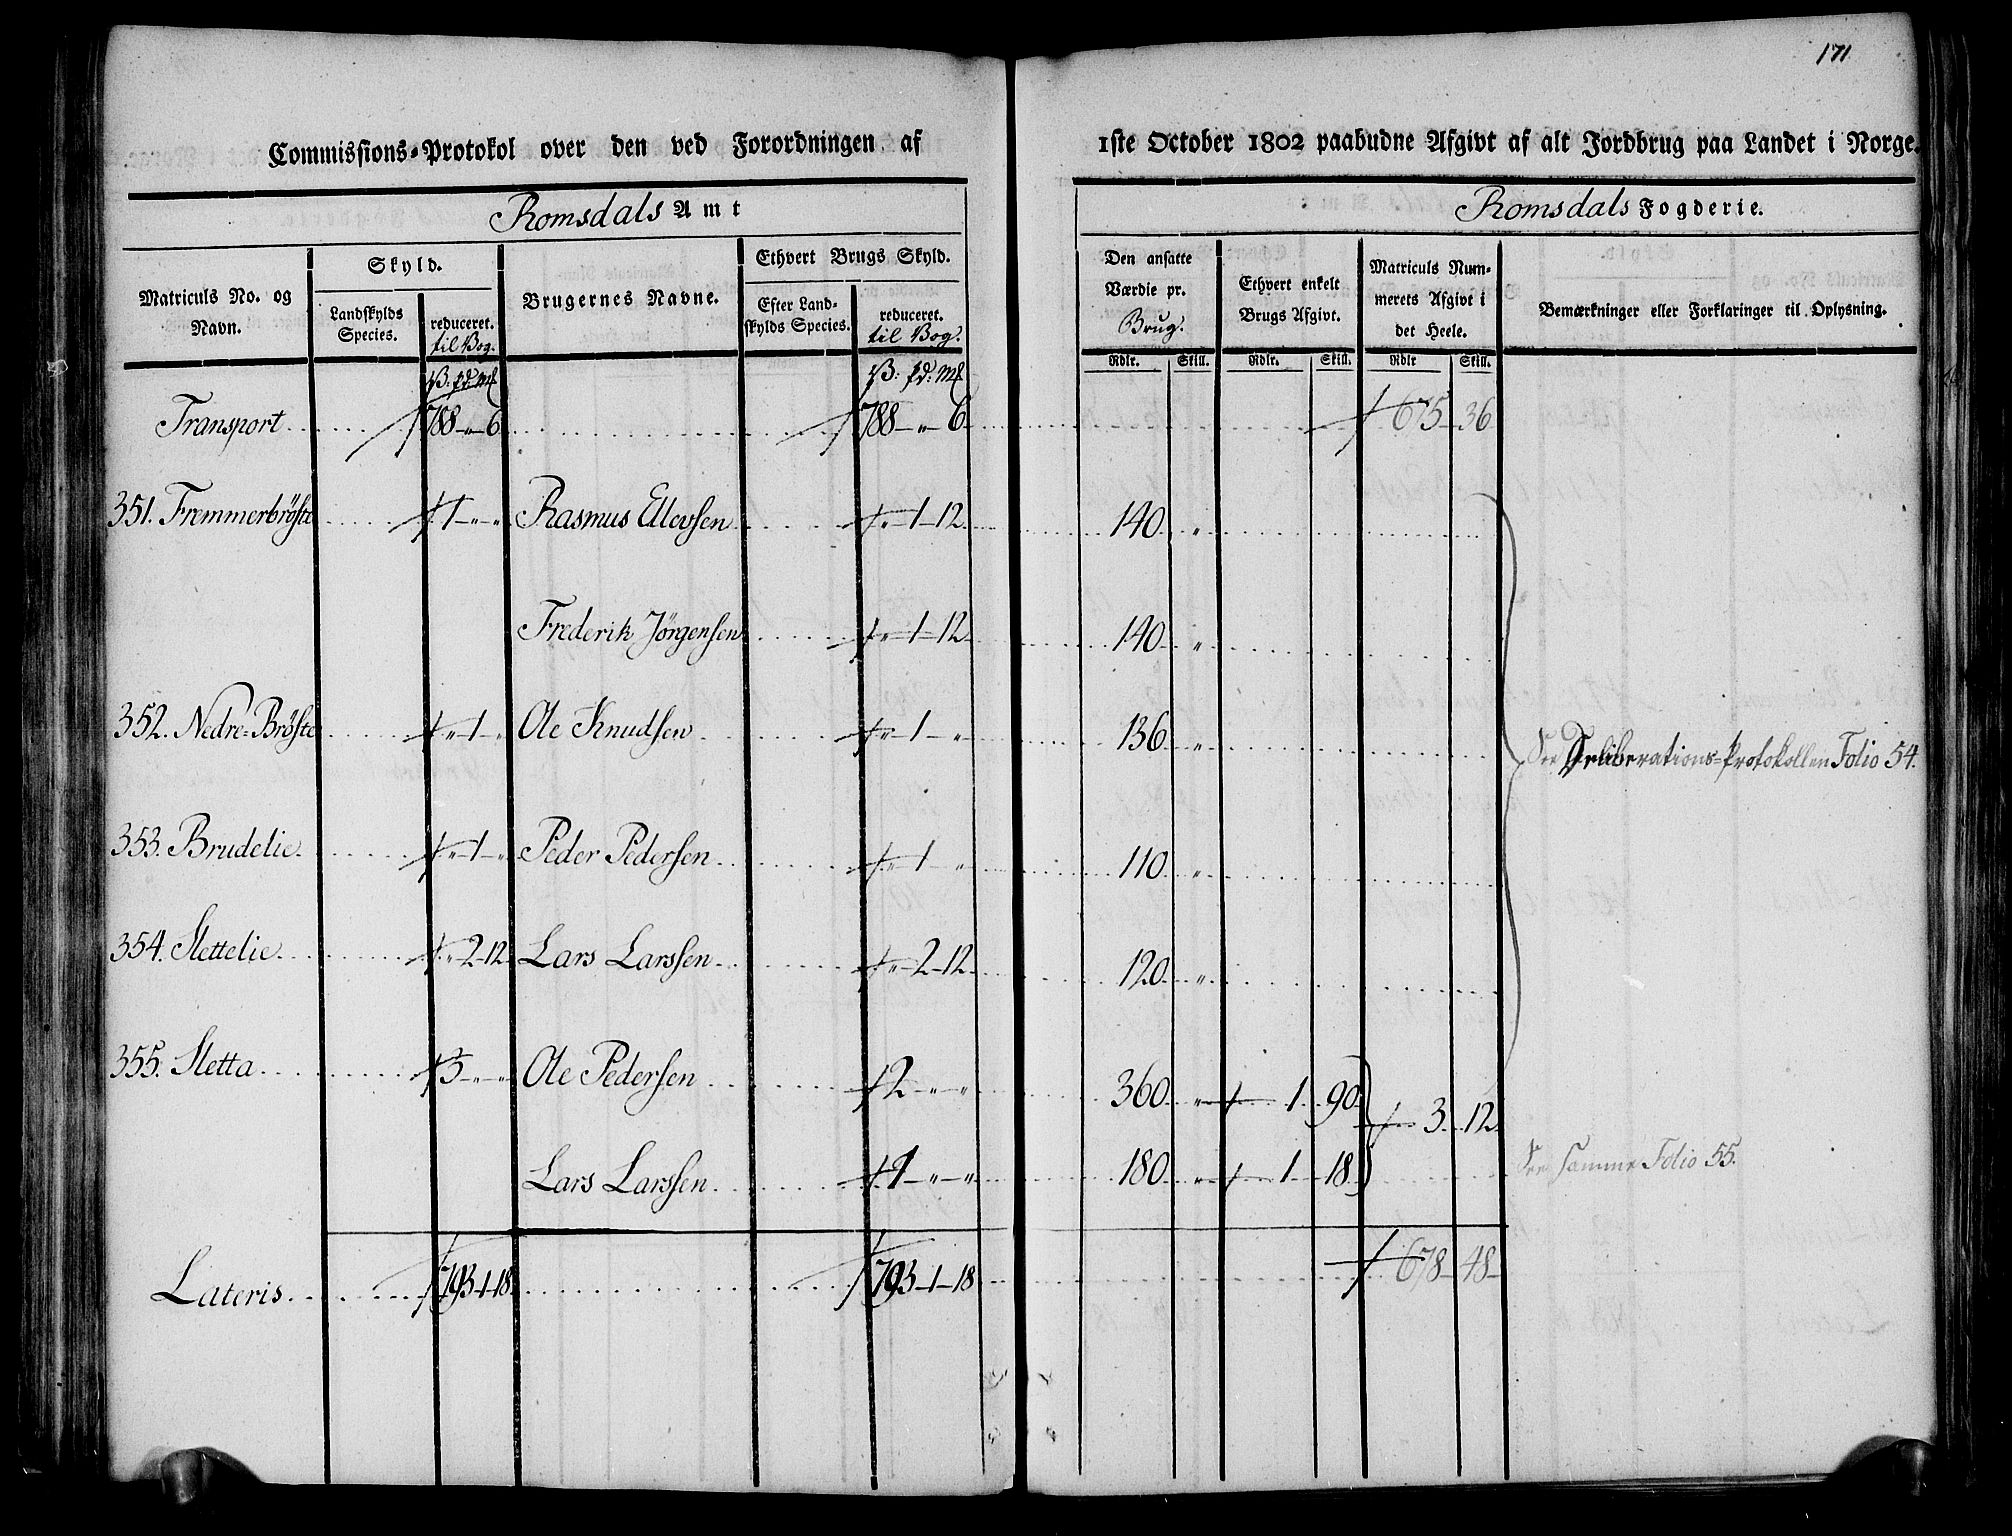 171.
Commissions-Protokol over den ved Forordningen af 1ste October 1802 paabudne Afgivt af alt Jordbrug paa Landet i Norge.
Romsdals Amt
Romsdals Fogderie.
Matriculs No. og Navn.
Skyld.
Landskylds Species.
reduceret. til Bog.
Brugernes Navne.
Ethvert Brugs Skyld.
Efter Landskylds Species.
reduceret. til Bog.
Den ansatte Værdie pr. Brug.
Ethvert enkelt Brugs Afgivt.
Matriculs Nummerets Afgivt i det Heele.
Bemærkninger eller Forklaringer til Oplysning.
Rdlr. Skill. Rdlr. Skill. Rdlr Skill.
Transport 788 " 6 788 " 6 675 36
351. Fremmerbröste 1 " " Rasmus Ellevsen " 1 12 140 "
Frederik Jörgensen " 1 12 140 "
352. Nedre-Bröste " 1 " Ole Knudsen " 1 " 136 "
See Deliberations-Protokollen Folio 54.
353. Brudelie " 1 " Peder Pedersen " 1 " 110 "
354. Slettelie " 2 12 Lars Larssen " 2 12 120 "
355. Sletta 3 " " Ole Pedersen 2 " " 360 " 1 90 3 12
Lars Larssen 1 " " 180 " 1 18
See samme Folio 55.
Lateris 793 1 18 793 1 18 678 48